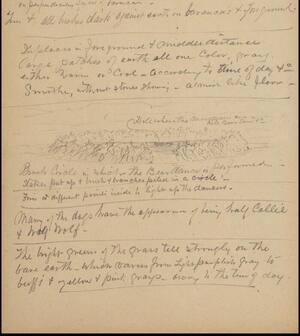 & all brushes dark against earth on
In places in foreground & middle distance
large patches of earth all one color, gray,
either warm or cool - according to time of day &
smooth, without stones showing - almost like floor -
Brush Circle in which The Bear dance is performed -
Stakes put up & brush & branches piled in a circle -
Fires at different points inside to light up the dancers.
Many of the dogs have the appearance of being half Collie
& half Wolf -
The bright greens of the grass tell strongly on the
bare earth - which varies from light purplish gray to
buffs & yellow & pink grays - owing to the time of day -